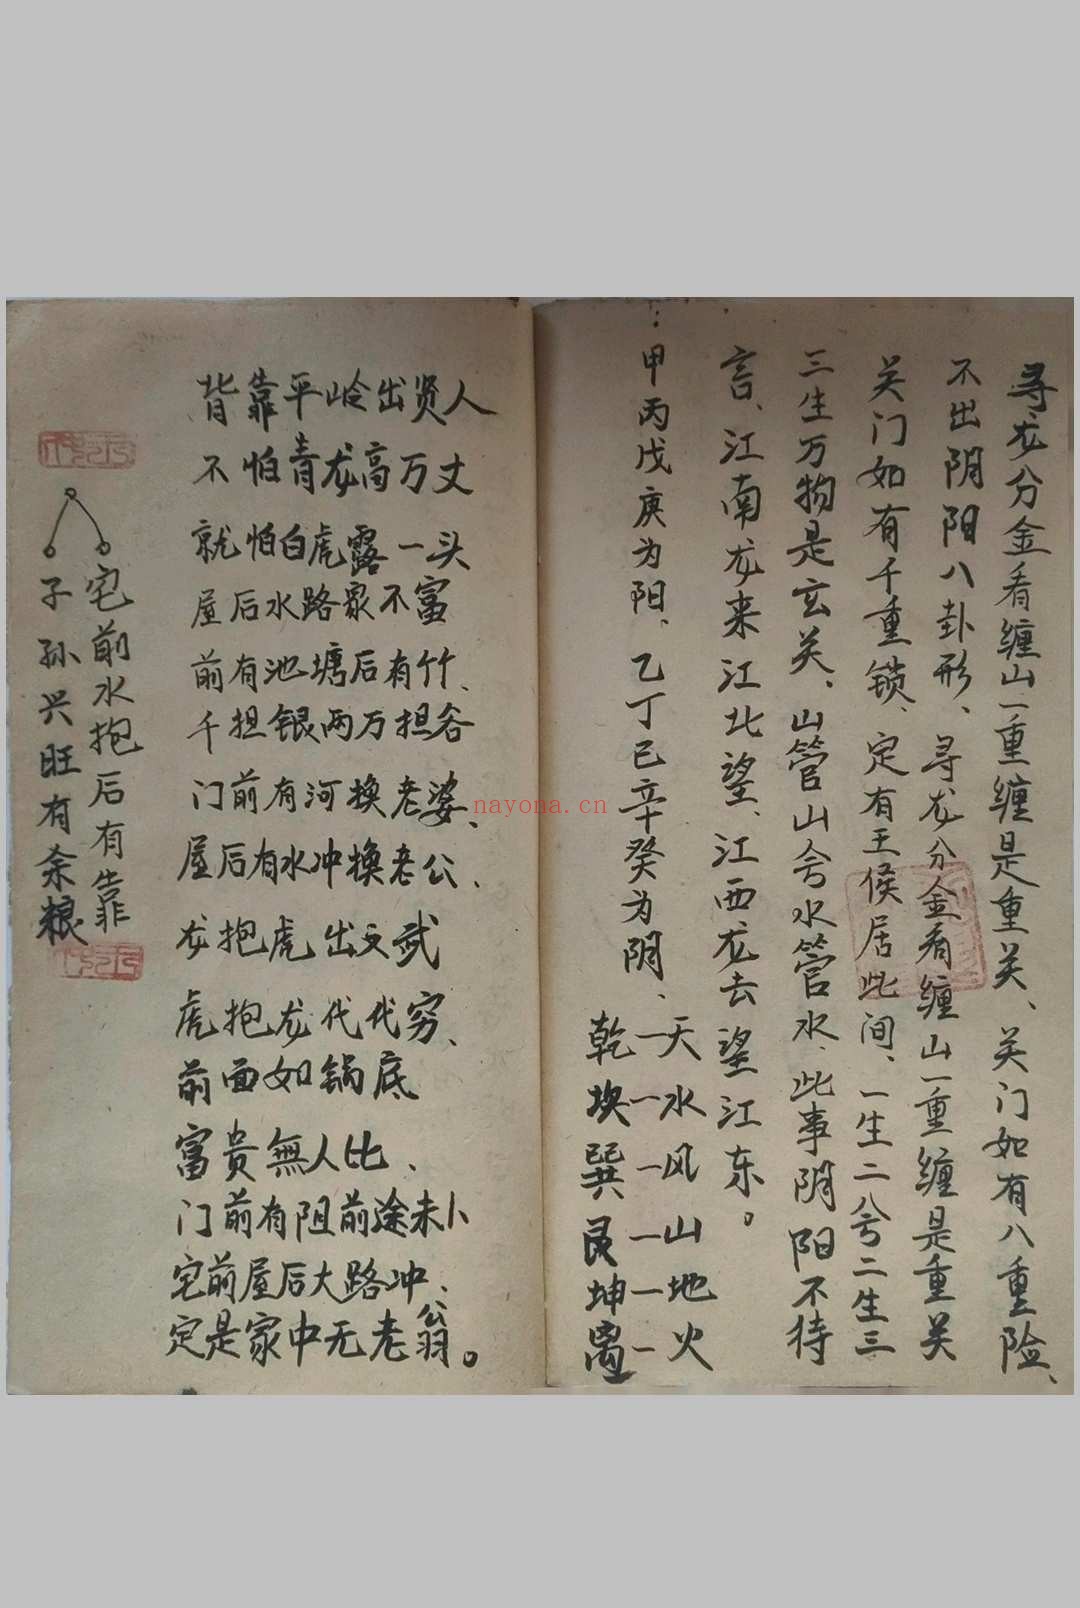 寻龙分金看缠山一重缠是重关、关门如有八重险、
不出阴阳八卦形、寻龙分金看缠山一重缠是重关
关门如有千重锁、定有王侯居此间、一生二兮二生三
三生万物是玄关、山管山兮水管水、此事阴阳不待
言、江南龙来江北望、江西龙去望江东。
甲丙戊庚为阳、乙丁已辛癸为阴、
乾一天
坎一水
巽一风
艮一山
坤一地
离一火
背靠平岭出贤人
不怕青龙高万丈
就怕白虎露一头
屋后水路家不富
前有池塘后有竹、
千担银两万担谷
门前有河换老婆、
屋后有水冲换老公、
龙抱虎出文武
虎抱龙代代穷、
前面如锅底
富贵無人比、
门前有阻前途未卜
宅前屋后大路冲、
定是家中无老翁。
宅前水抱后有靠
子孙兴旺有余粮
nayona.cn